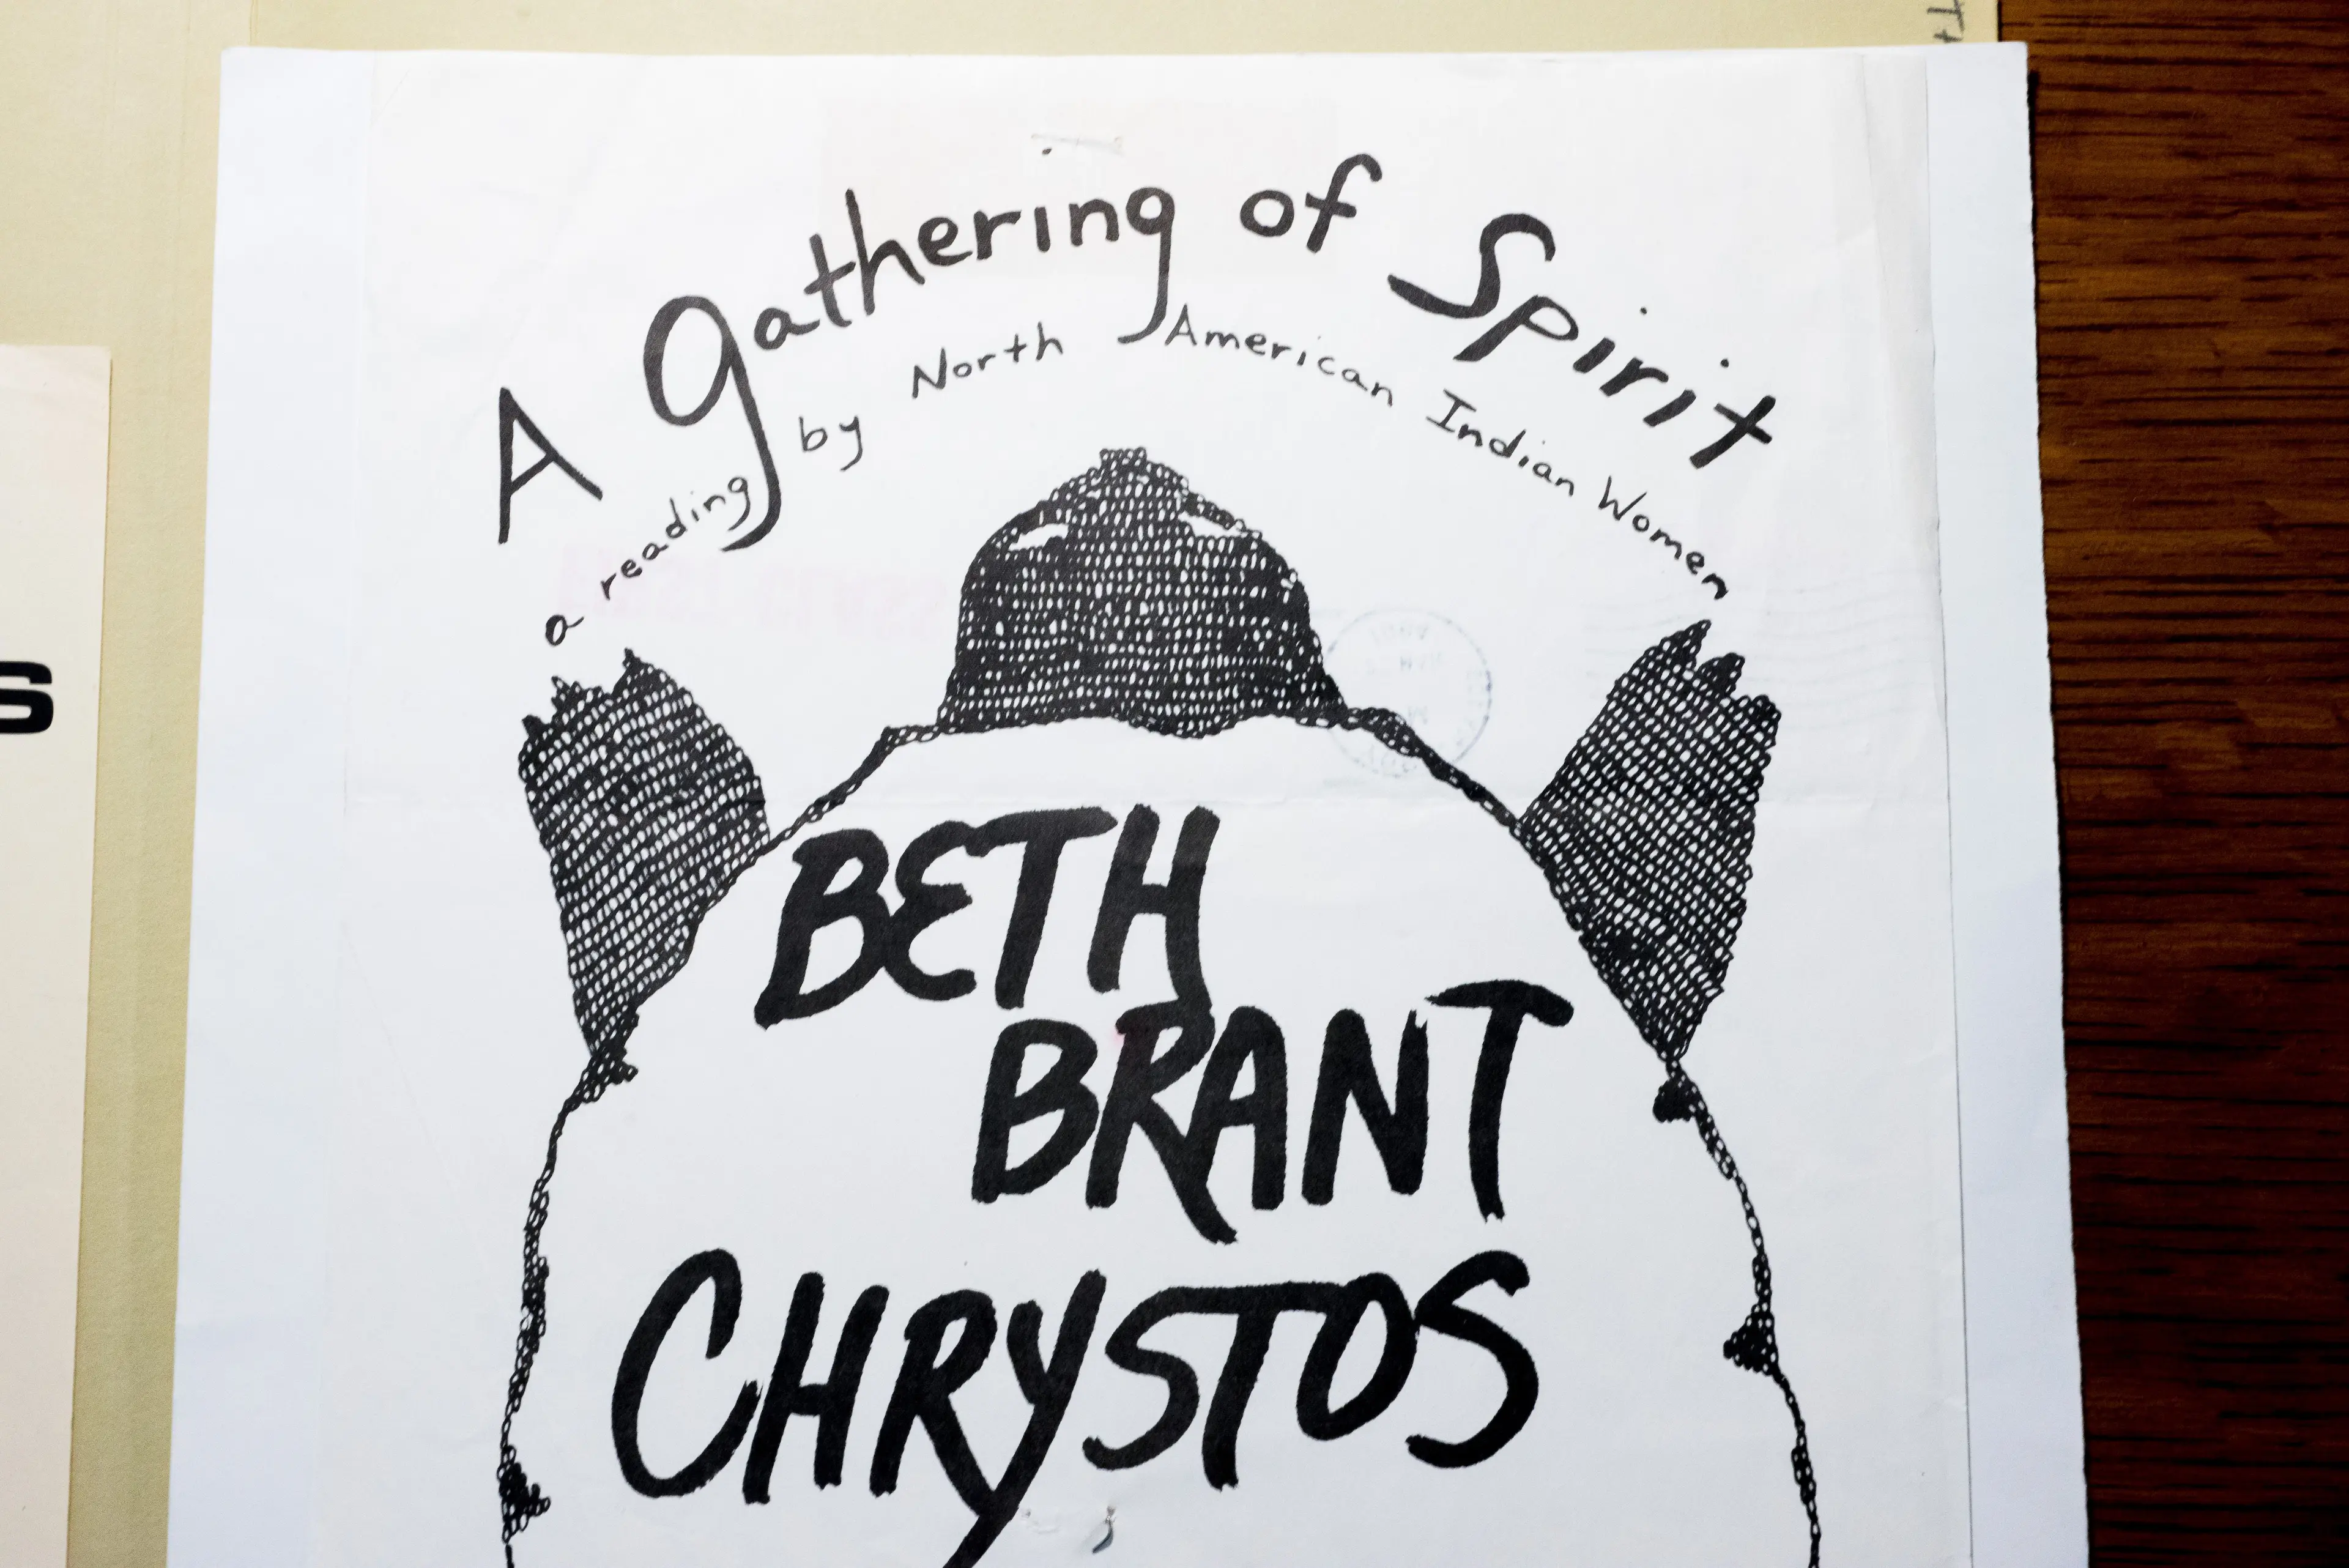 A gathering of Spirit
a reading by North American Indian Women
BETH
BRANT
CHRYSTOS
S